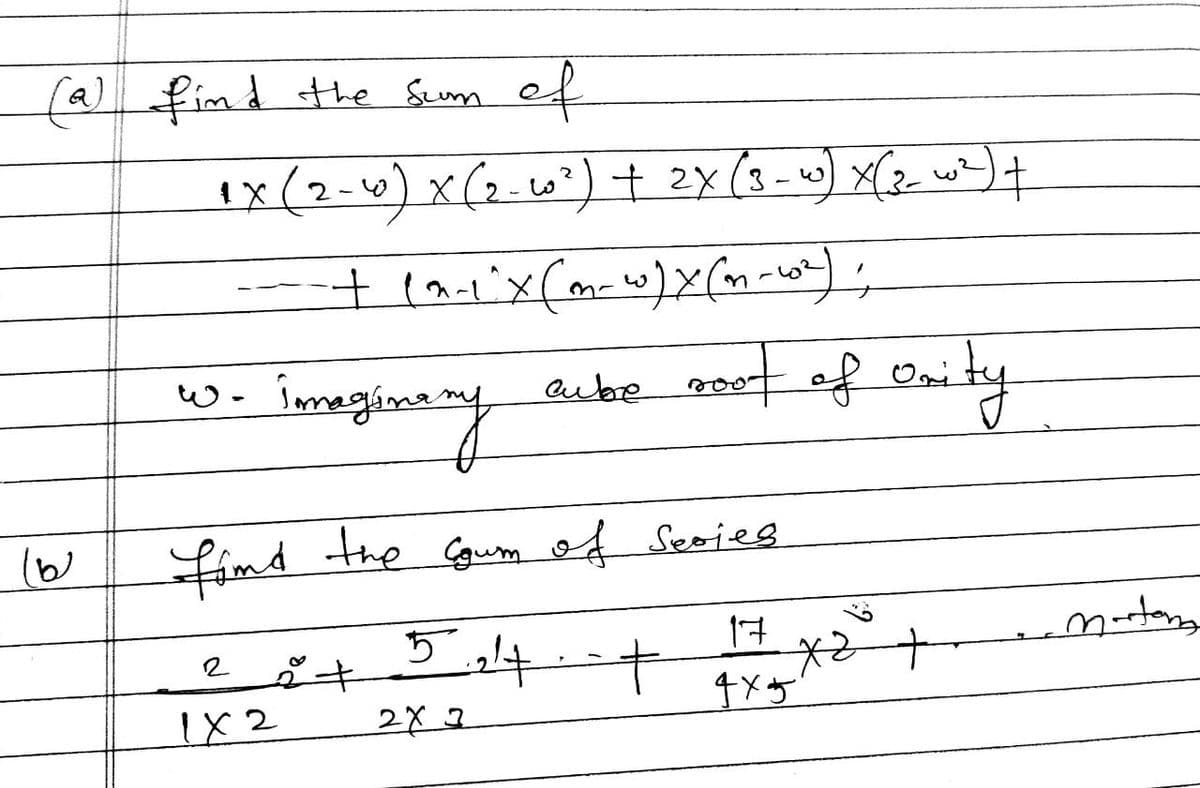 (a) find the sum of
1×(2-ω)×(2-ω²) + 2×(3-ω)×(3-ω²)+
----+ (n-1)×(n-ω)×(n-ω²);
ω- imaginary cube root of unity
(b) find the sum of series
2/1×2 2⁰ + 5/2×3 .2¹+ . - + 17/4×5 ×2³ + . . . n-term